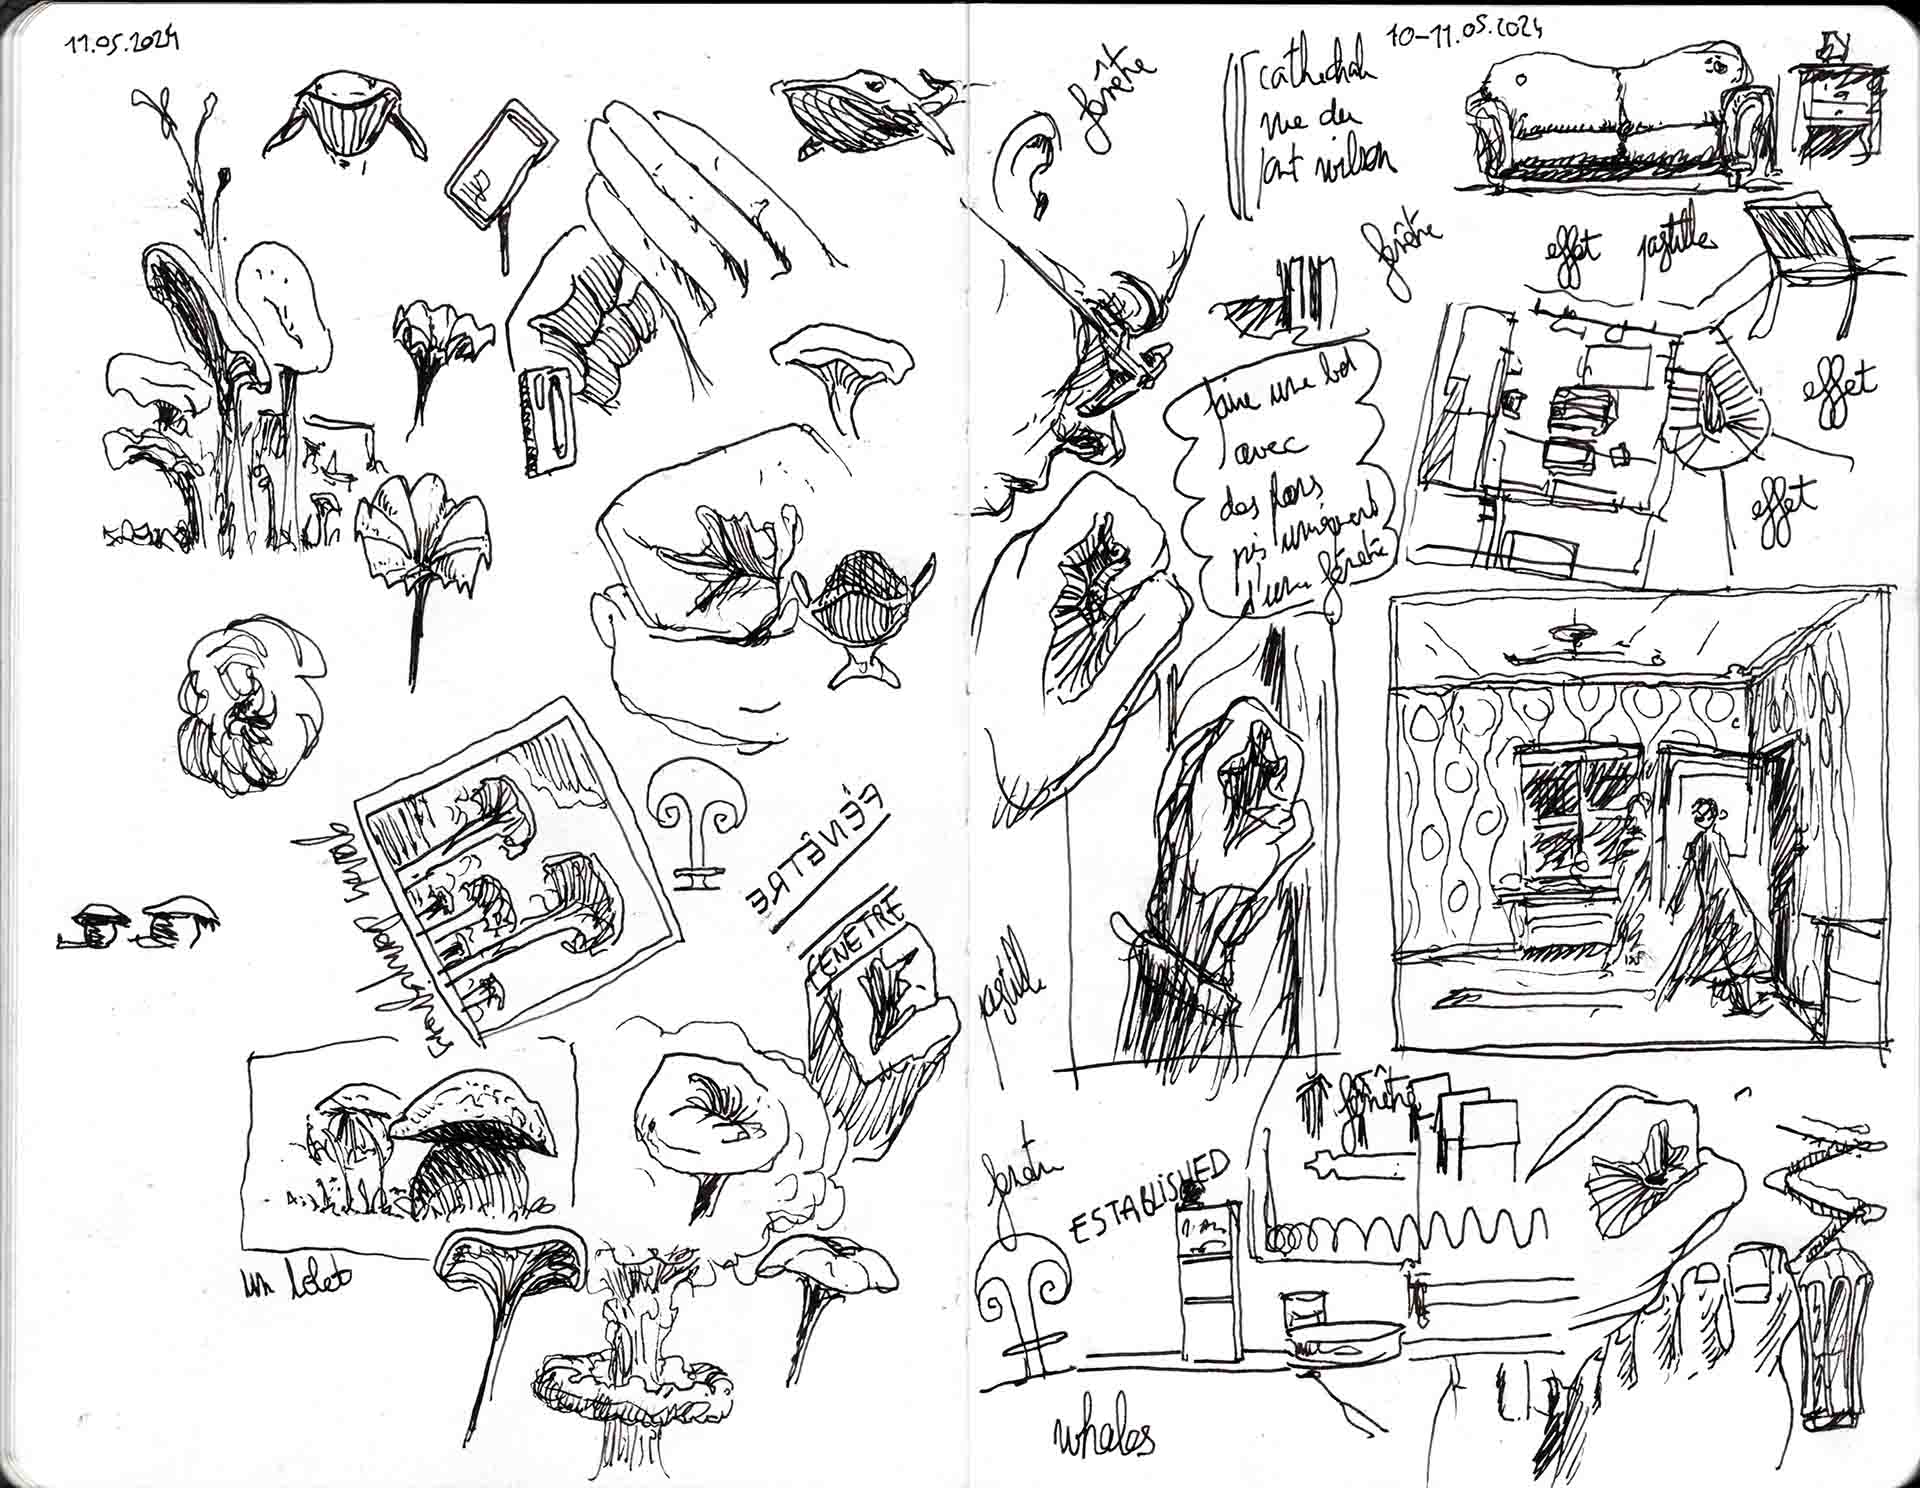 11.05.2024
FÉNÊTRE
FENETRE
10-11.05.2024
fenêtre
cathédrale
vue du
pont wilson
fenêtre
effet pastille
effet
effet
faire une bd
avec
des plans
pris uniquement
d'une fenêtre
pastille
fenêtre
ESTABLISHED
whales